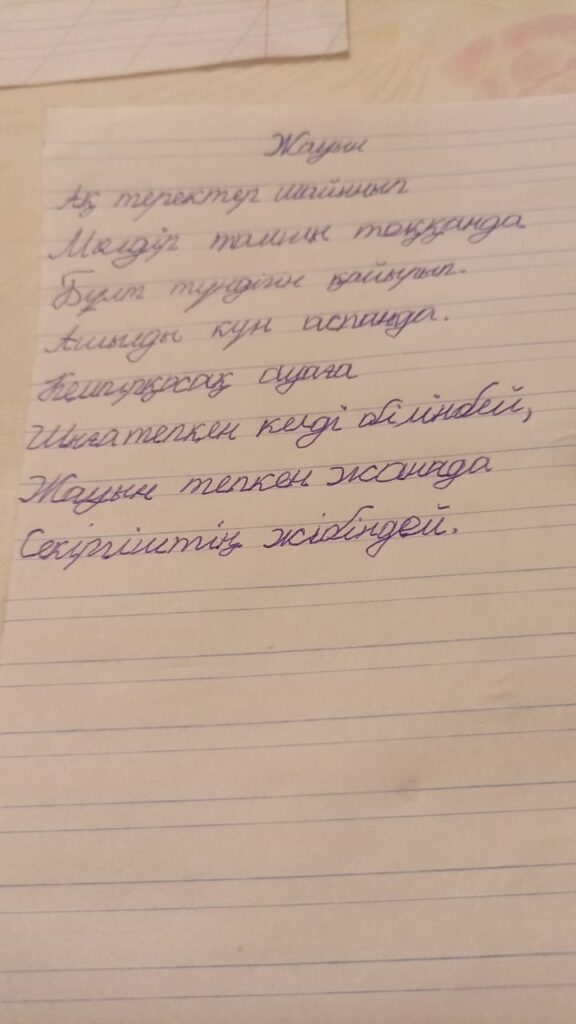 Жауын
Ақ теректер шайынып
Мөлдір тамшы тоққанда
Бұлт түндігін қайырып.
Ашылды күн аспанда.
Кемпірқосақ ауаға
Шығатепкен келді білінбей,
Жауын тепкен жаңада
Секіргіштің жібіндей.